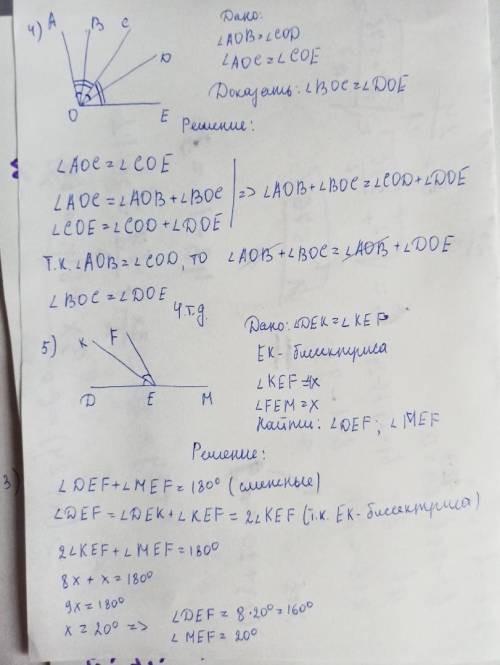 4) A B C D O E
Дано:
∠AOB=∠COD
∠AOC=∠COE
Доказать: ∠BOC=∠DOE
Решение:
∠AOC=∠COE
∠AOC=∠AOB+∠BOC => ∠AOB+∠BOC=∠COD+∠DOE
∠COE=∠COD+∠DOE
Т.к. ∠AOB=∠COD, то ∠AOB+∠BOC=∠AOB+∠DOE
∠BOC=∠DOE
Ч.т.д.
5) K F D E M
Дано: ∠DEK=∠KEF
EK- биссектриса
∠KEF=4x
∠FEM=x
Найти: ∠DEF; ∠MEF
Решение:
3)
∠DEF+∠MEF=180° (смежные)
∠DEF=∠DEK+∠KEF=2∠KEF (т.к. EK-биссектриса)
2∠KEF+∠MEF=180°
8x+x=180°
9x=180°
x=20° => ∠DEF=8·20°=160°
∠MEF=20°